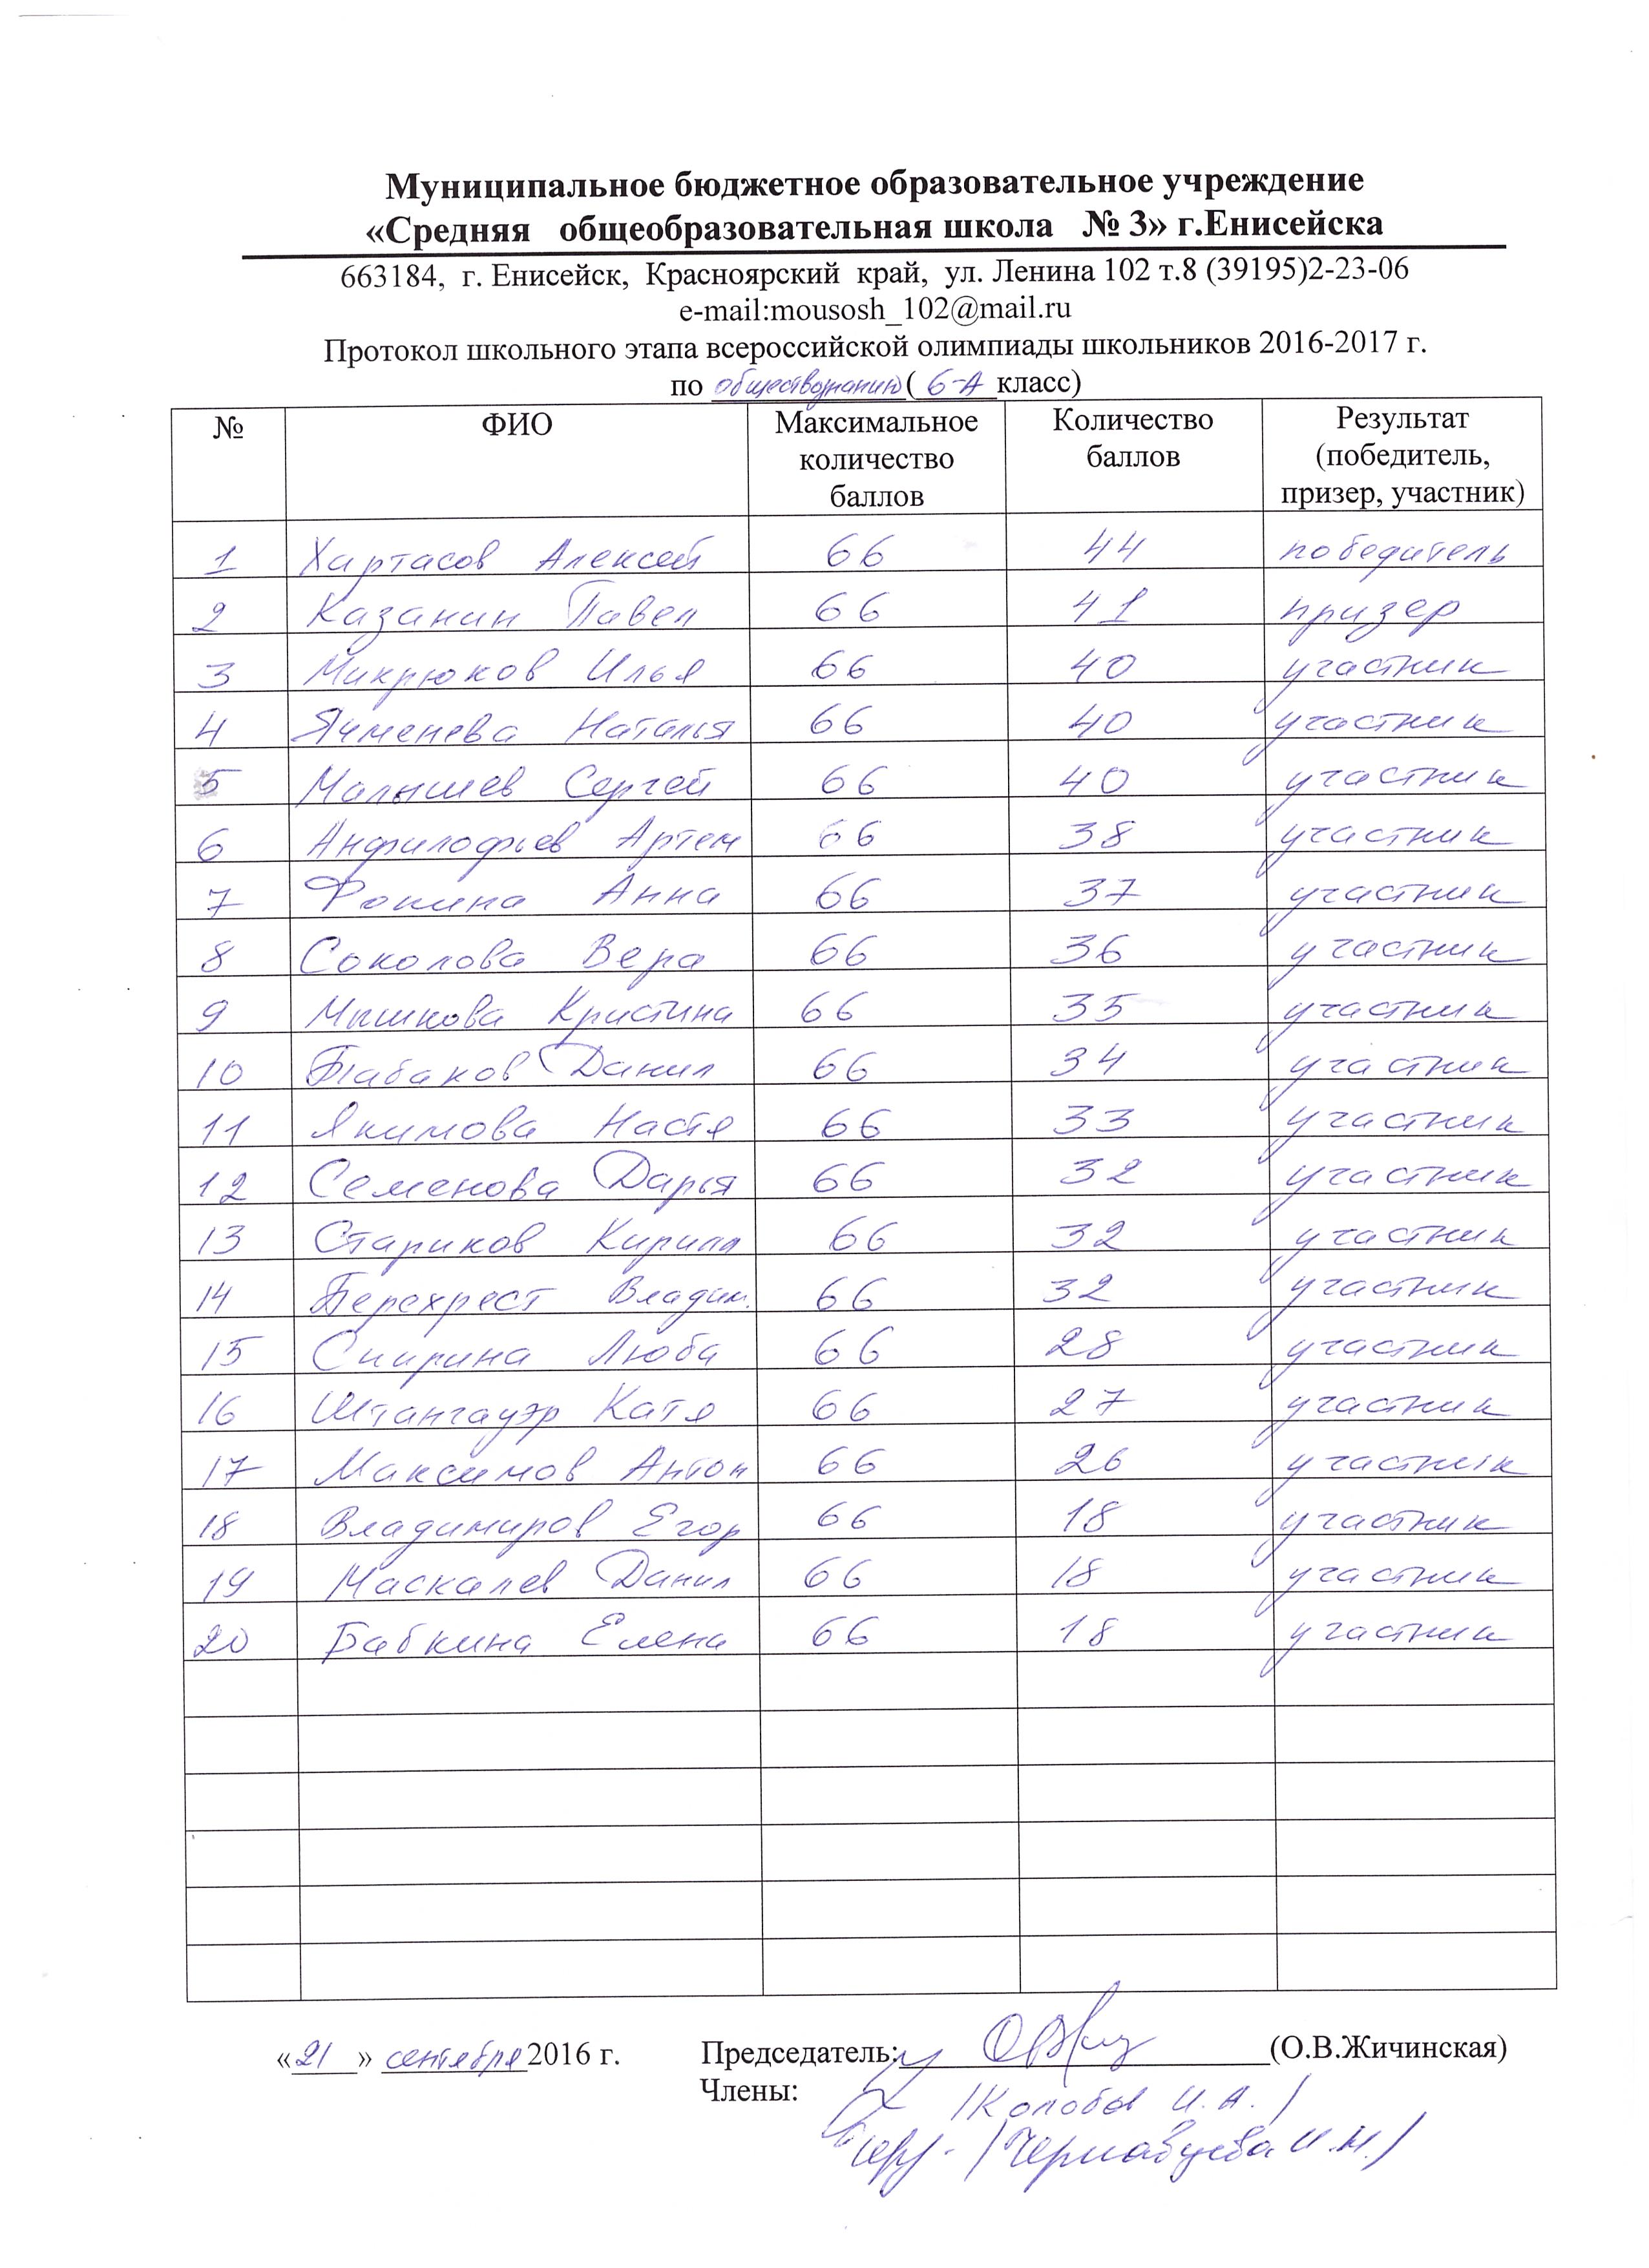 Муниципальное бюджетное образовательное учреждение
«Средняя общеобразовательная школа № 3» г.Енисейска
663184, г. Енисейск, Красноярский край, ул. Ленина 102 т.8 (39195)2-23-06
e-mail:mousosh_102@mail.ru
Протокол школьного этапа всероссийской олимпиады школьников 2016-2017 г.
по обществознанию (6-А класс)
№ ФИО Максимальное количество баллов Количество баллов Результат (победитель, призер, участник)
1 Хартасов Алексей 66 44 победитель
2 Казанин Павел 66 41 призер
3 Микрюков Илья 66 40 участник
4 Ячменева Наталья 66 40 участник
5 Малышев Сергей 66 40 участник
6 Анфилофьев Артем 66 38 участник
7 Фокина Анна 66 37 участник
8 Соколова Вера 66 36 участник
9 Мышкова Кристина 66 35 участник
10 Табаков Данил 66 34 участник
11 Якимова Настя 66 33 участник
12 Семенова Дарья 66 32 участник
13 Стариков Кирилл 66 32 участник
14 Перехрест Владим. 66 32 участник
15 Спирина Люба 66 28 участник
16 Штангауэр Катя 66 27 участник
17 Максимов Антон 66 26 участник
18 Владимиров Егор 66 18 участник
19 Маскалев Данил 66 18 участник
20 Бабкина Елена 66 18 участник
«21» сентября 2016 г. Председатель: (О.В.Жичинская)
Члены:
/Колобов И.А./
/ И.М./